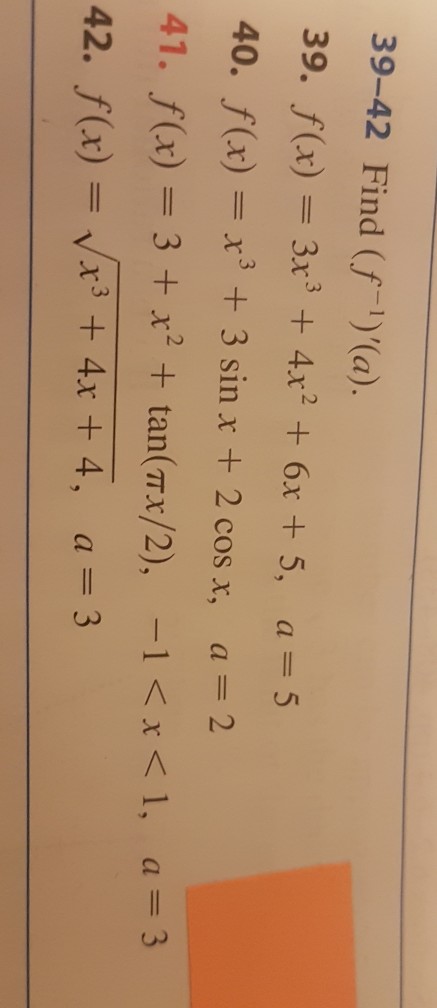 39–42 Find (f⁻¹)′(a).
39. f(x) = 3x³ + 4x² + 6x + 5, a = 5
40. f(x) = x³ + 3 sin x + 2 cos x, a = 2
41. f(x) = 3 + x² + tan(πx/2), −1 < x < 1, a = 3
42. f(x) = √(x³ + 4x + 4), a = 3